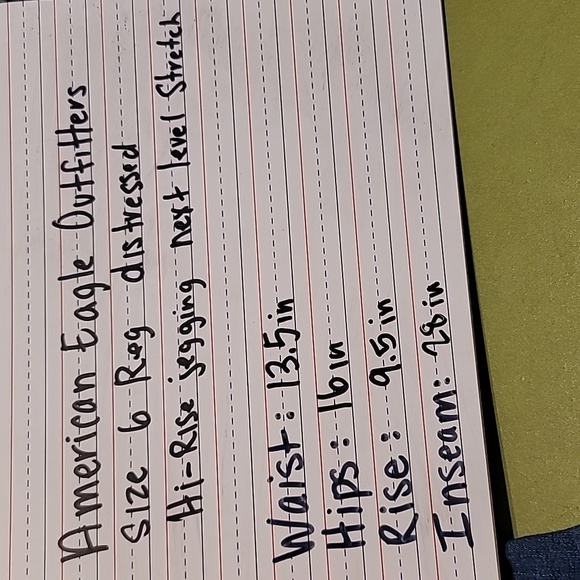 American Eagle Outfitters
Size 6 Reg distressed
Hi-Rise jegging next level Stretch
Waist: 13.5in
Hips: 16in
Rise: 9.5in
Inseam: 28in